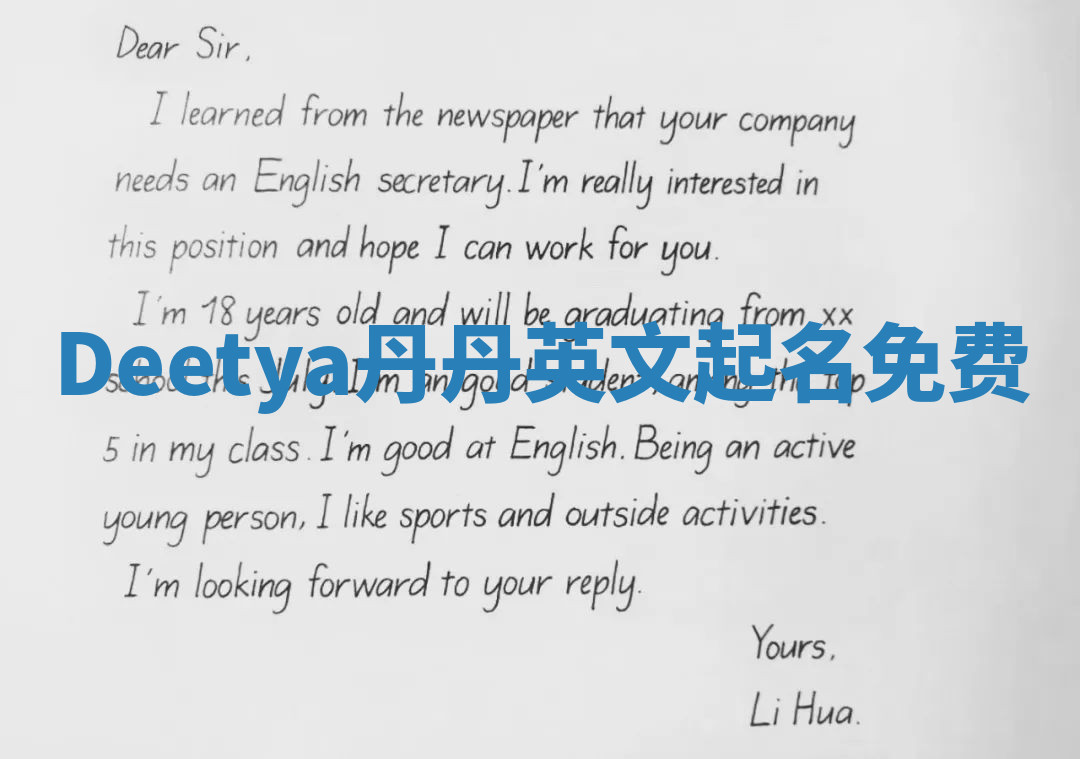 Dear Sir,
I learned from the newspaper that your company
needs an English secretary. I'm really interested in
this position and hope I can work for you.
I'm 18 years old and will be graduating from xx
Deetya丹丹英文起名免费
school this July. I'm an good student, among the top
5 in my class. I'm good at English. Being an active
young person, I like sports and outside activities.
I'm looking forward to your reply.
Yours,
Li Hua.